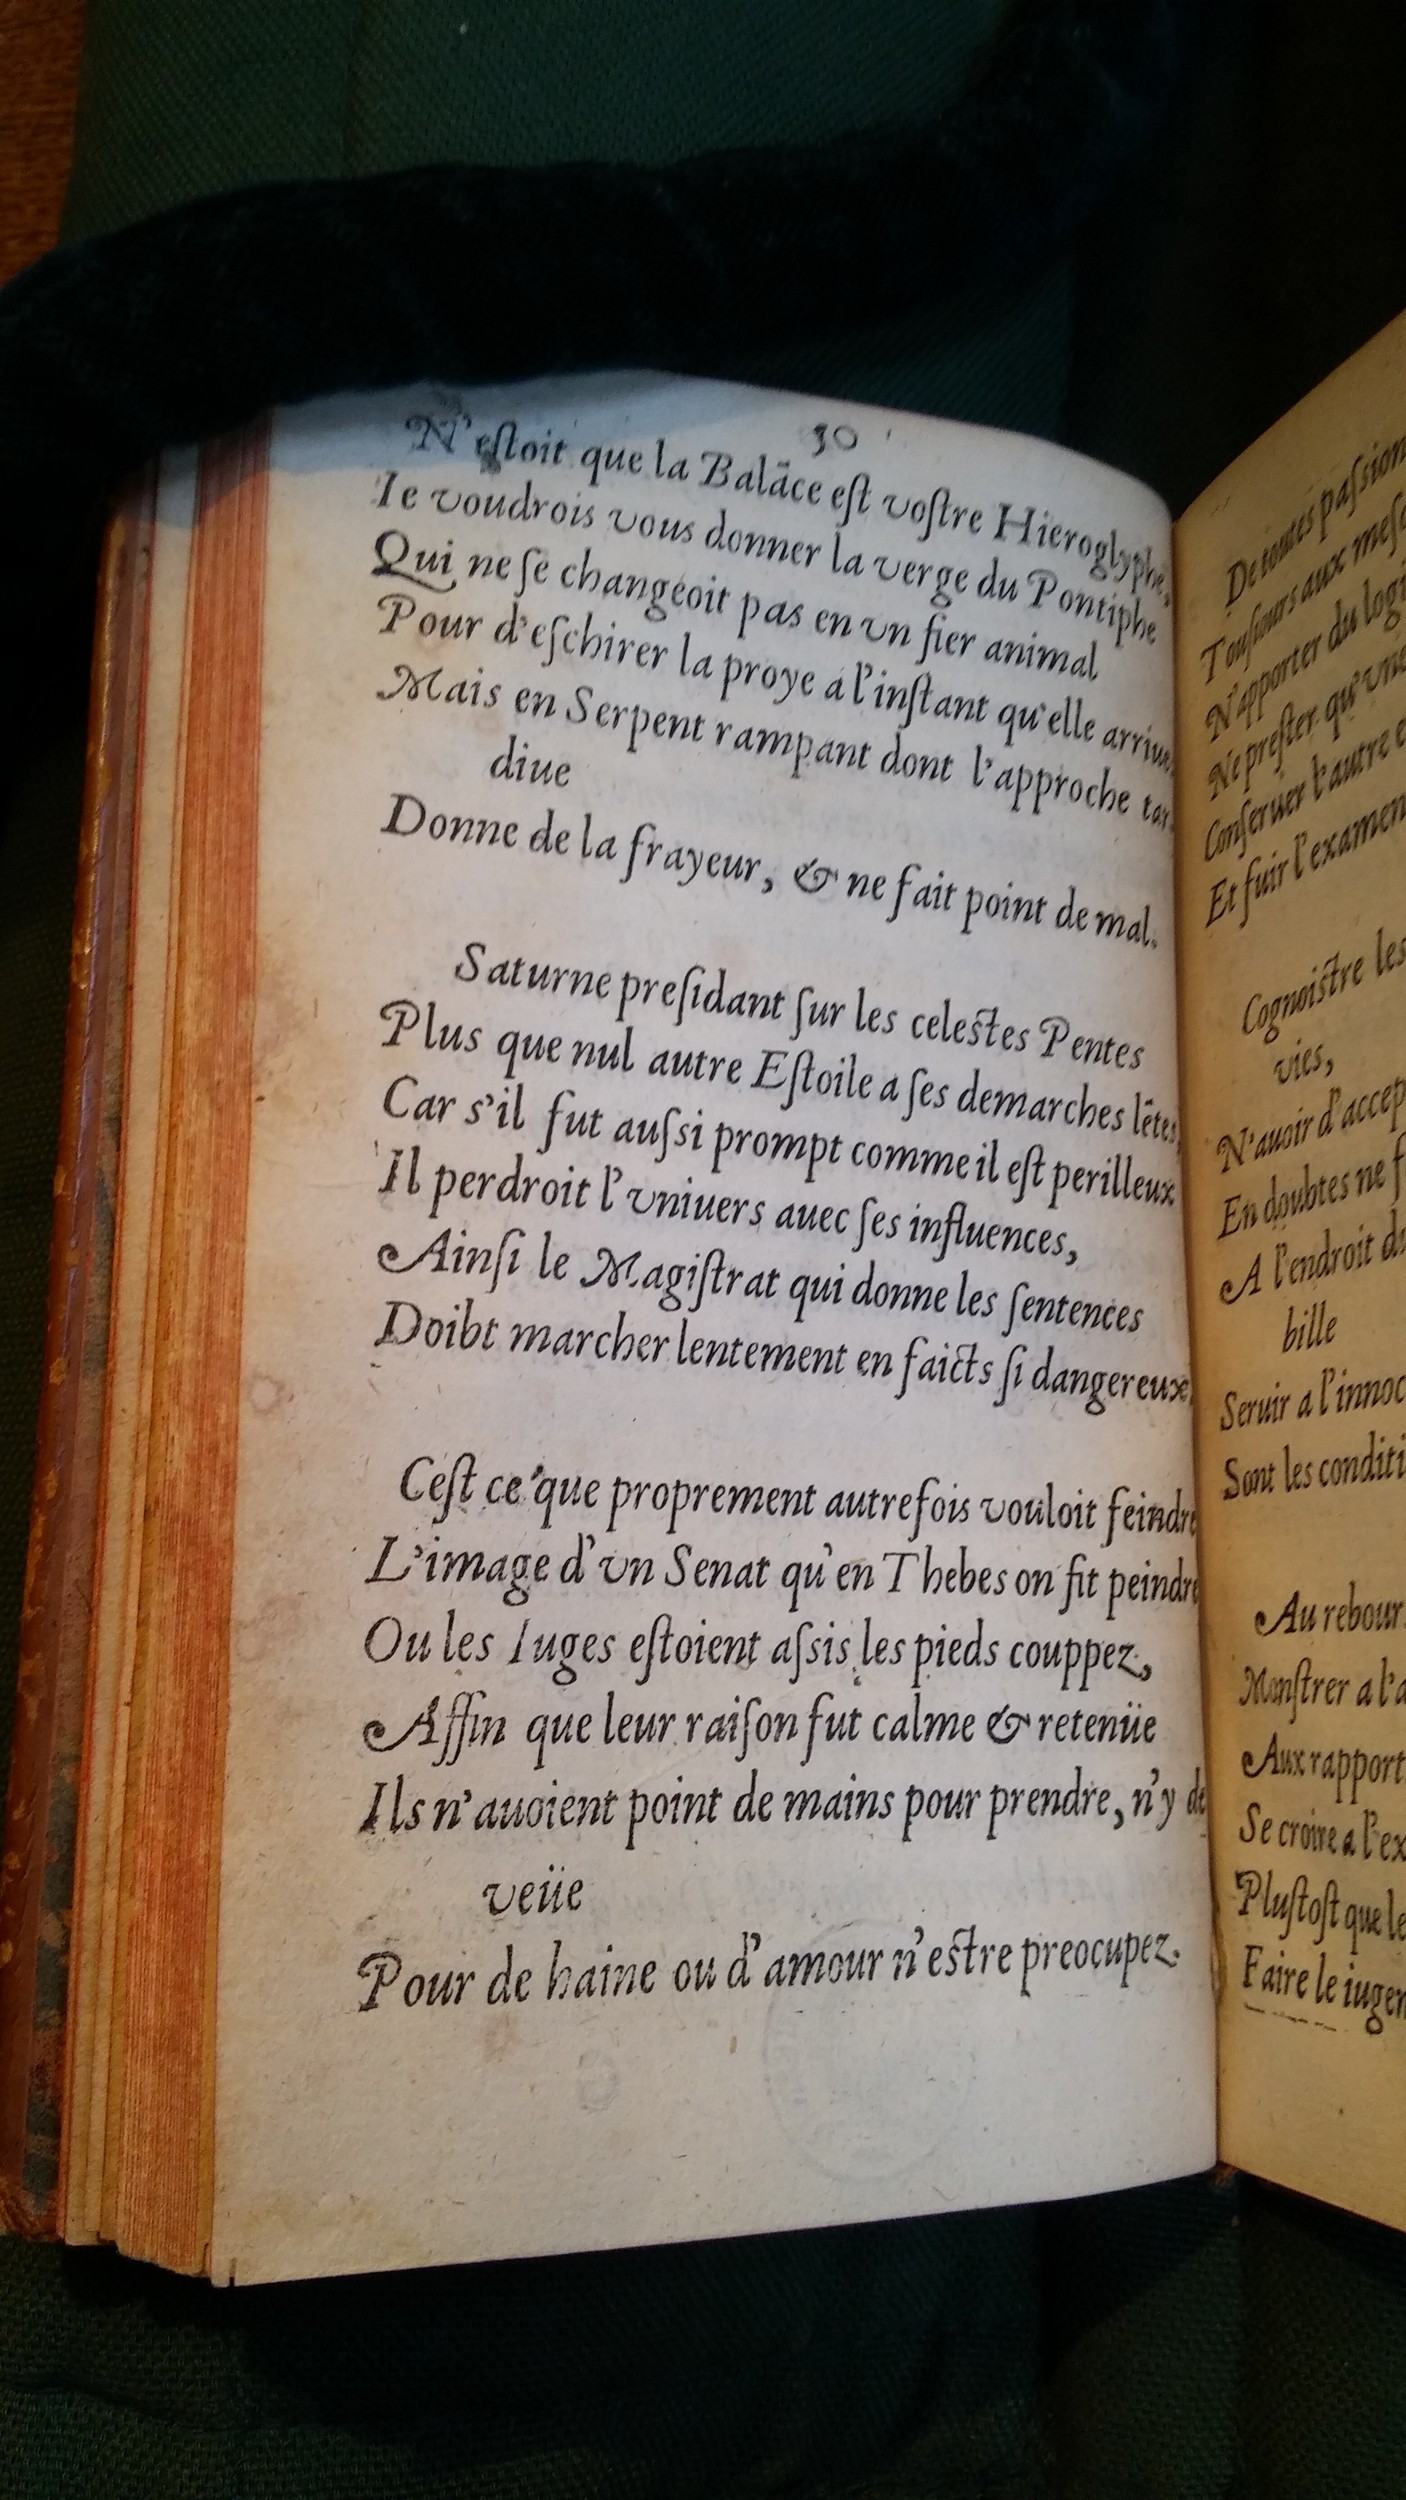 30
N'eſtoit que la Balāce eſt voſtre Hieroglyphe,
Ie voudrois vous donner la verge du Pontiphe
Qui ne ſe changeoit pas en vn fier animal
Pour d'eſchirer la proye a l'inſtant qu'elle arriue
Mais en Serpent rampant dont l'approche tar
diue
Donne de la frayeur, & ne fait point de mal.
Saturne preſidant ſur les celeſtes Pentes
Plus que nul autre Eſtoile a ſes demarches lētes,
Car s'il fut auſsi prompt comme il eſt perilleux
Il perdroit l'vniuers auec ſes influences,
Ainſi le Magiſtrat qui donne les ſentences
Doibt marcher lentement en faicts ſi dangereux.
Ceſt ce que proprement autrefois vouloit feindre
L'image d'vn Senat qu'en Thebes on fit peindre
Ou les Iuges eſtoient aſsis les pieds couppez,
Affin que leur raiſon fut calme & retenüe
Ils n'auoient point de mains pour prendre, n'y de
veüe
Pour de haine ou d'amour n'eſtre preocupez.
De toutes paſsion
Touſiours aux meſ
N'apporter du logi
Ne preſter qu'vne
Conſeruer l'autre e
Et fuir l'examen
Cognoiſtre les
vies,
N'auoir d'accep
En doubtes ne f
A l'endroit du
bille
Seruir a l'innoc
Sont les conditi
Au rebour
Monſtrer a l'a
Aux rapport
Se croire a l'ex
Pluſtoſt que le
Faire le iuger